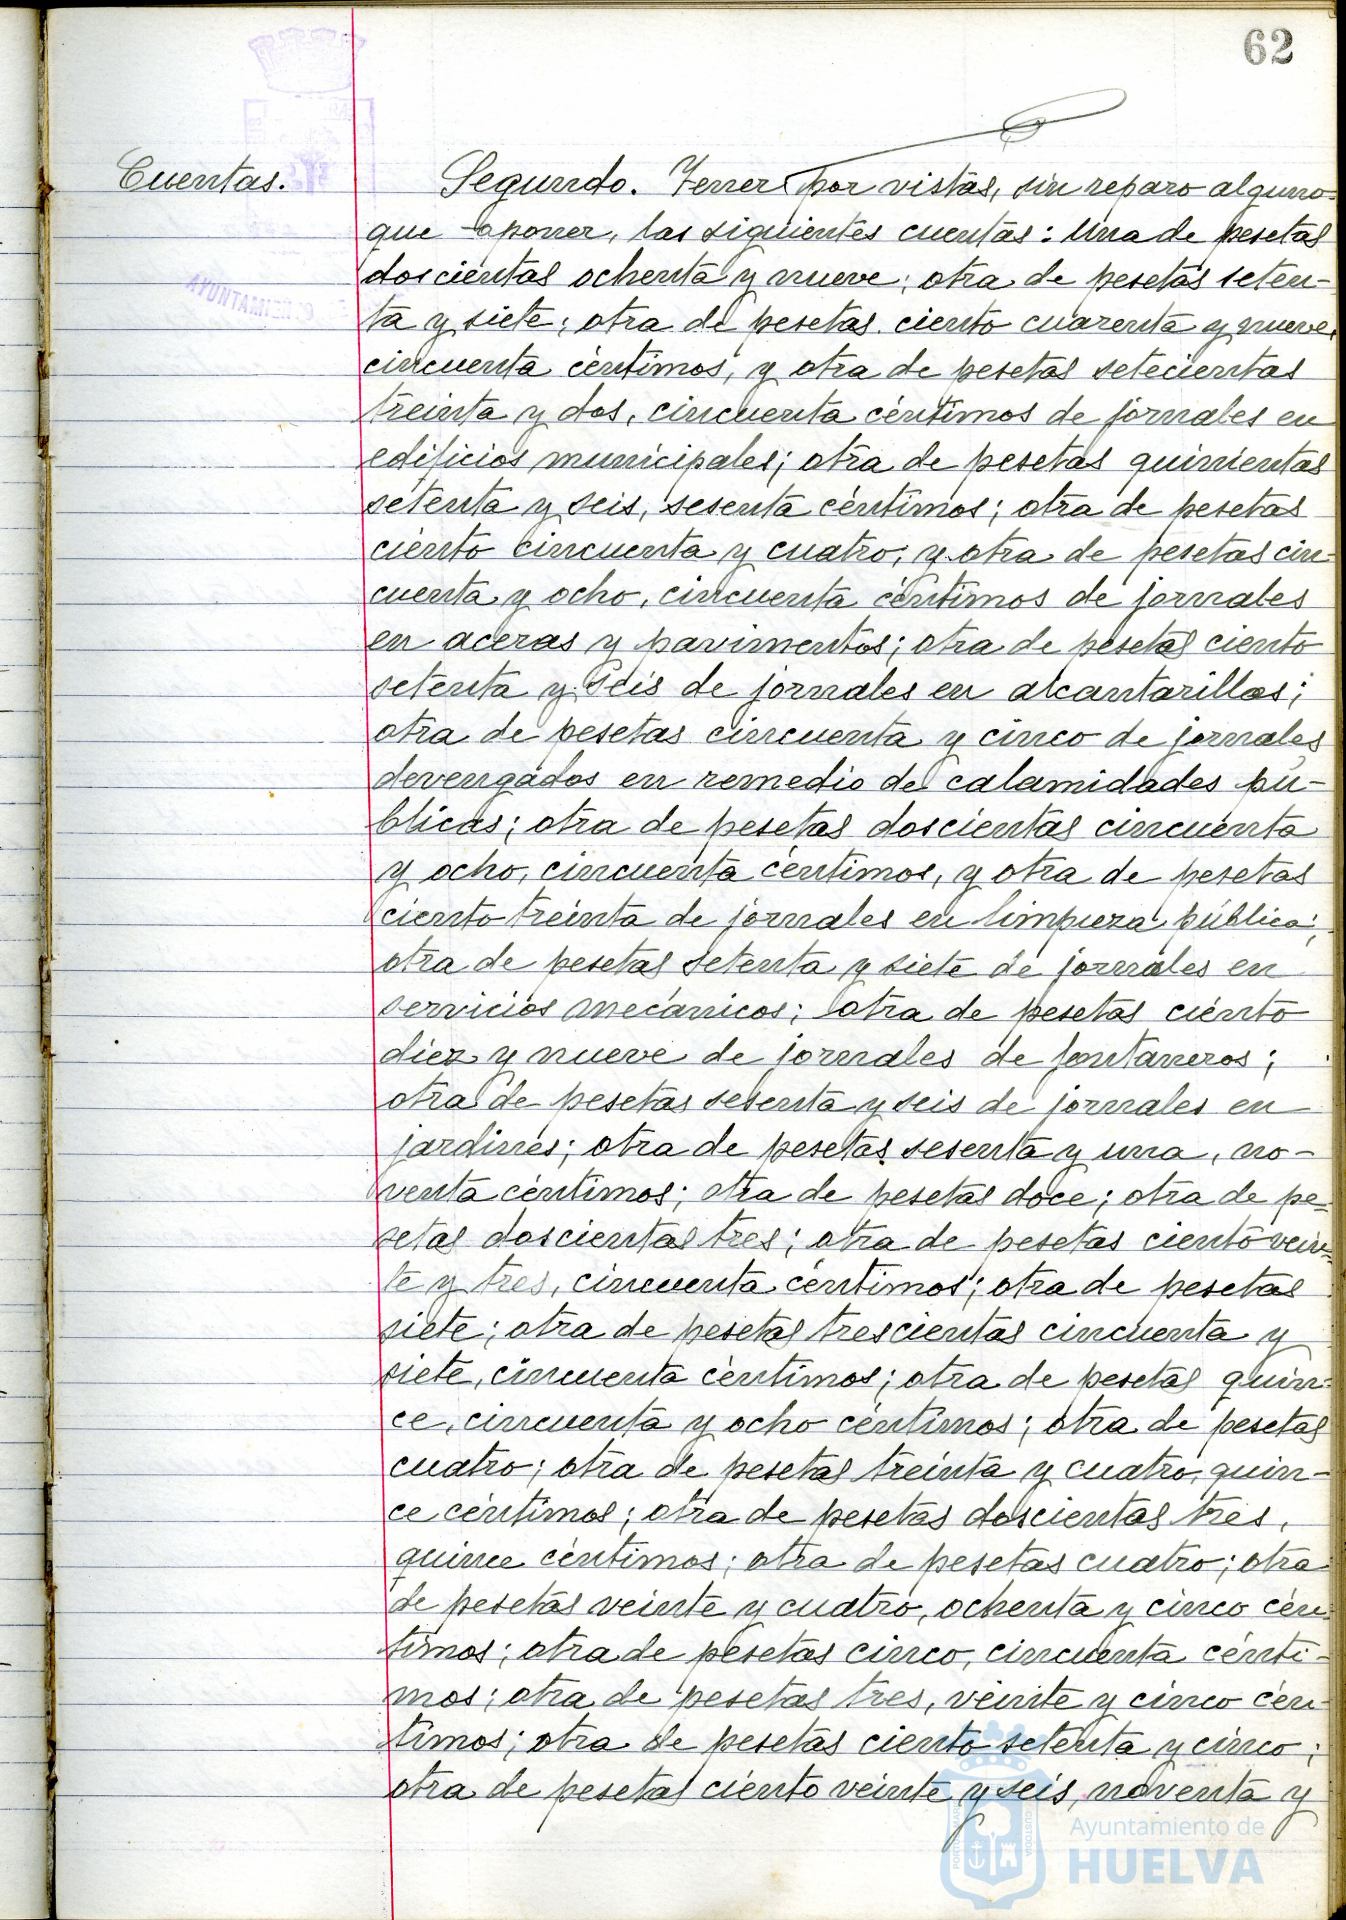 62
Cuentas.
Segundo. Tener por vistas, sin reparo alguno
que oponer, las siguientes cuentas: Una de pesetas
doscientas ochenta y nueve; otra de pesetas seten-
ta y siete; otra de pesetas ciento cuarenta y nueve,
cincuenta céntimos, y otra de pesetas setecientas
treinta y dos, cincuenta céntimos de jornales en
edificios municipales; otra de pesetas quinientas
setenta y seis, sesenta céntimos; otra de pesetas
ciento cincuenta y cuatro, y otra de pesetas cin-
cuenta y ocho, cincuenta céntimos de jornales
en aceras y pavimentos; otra de pesetas ciento
setenta y seis de jornales en alcantarillas;
otra de pesetas cincuenta y cinco de jornales
devengados en remedio de calamidades pú-
blicas; otra de pesetas doscientas cincuenta
y ocho, cincuenta céntimos, y otra de pesetas
ciento treinta de jornales en limpieza pública;
otra de pesetas setenta y siete de jornales en
servicios mecánicos; otra de pesetas ciento
diez y nueve de jornales de fontaneros;
otra de pesetas sesenta y seis de jornales en
jardines; otra de pesetas sesenta y una, no-
venta céntimos; otra de pesetas doce; otra de pe-
setas doscientas tres; otra de pesetas ciento vein-
te y tres, cincuenta céntimos; otra de pesetas
siete; otra de pesetas trescientas cincuenta y
siete, cincuenta céntimos; otra de pesetas quin-
ce, cincuenta y ocho céntimos; otra de pesetas
cuatro; otra de pesetas treinta y cuatro, quin-
ce céntimos; otra de pesetas doscientas tres,
quince céntimos; otra de pesetas cuatro; otra
de pesetas veinte y cuatro, ochenta y cinco cén-
timos; otra de pesetas cinco, cincuenta cénti-
mos; otra de pesetas tres, veinte y cinco cén-
timos; otra de pesetas ciento setenta y cinco;
otra de pesetas ciento veinte y seis, noventa y
AYUNTAMIENTO
Ayuntamiento de
HUELVA